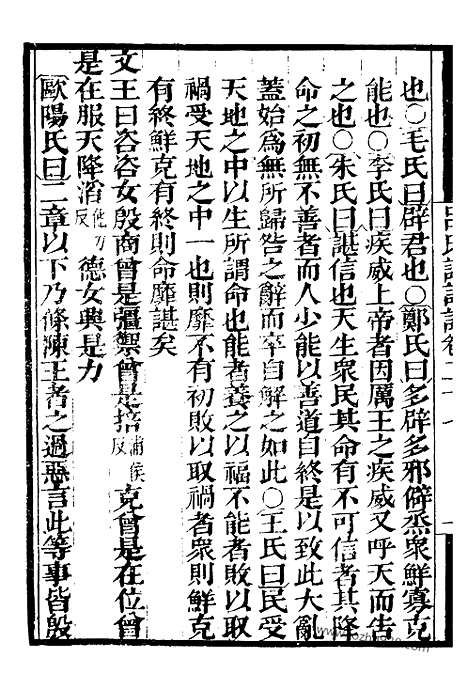 也○毛氏曰辟君也○鄭氏曰多辟多邪僻烝衆鮮寡克
能也○李氏曰疾威上帝者因厲王之疾威又呼天而告
之也○朱氏曰諶信也天生衆民其命有不可信者其降
命之初無不善者而人少能以善道自終是以致此大亂
蓋始爲無所歸咎之辭而卒自解之如此○王氏曰民受
天地之中以生所謂命也能者養之以福不能者敗以取
禍受天地之中一也則靡不有初敗以取禍者衆則鮮克
有終鮮克有終則命靡諶矣
文王曰咨咨女殷商曾是彊禦曾是掊蒲侯反克曾是在位曾
是在服天降滔他刀反德女興是力
歐陽氏曰二章以下乃條陳王者之過惡言此等事皆殷
呂氏讀詩記卷二十七